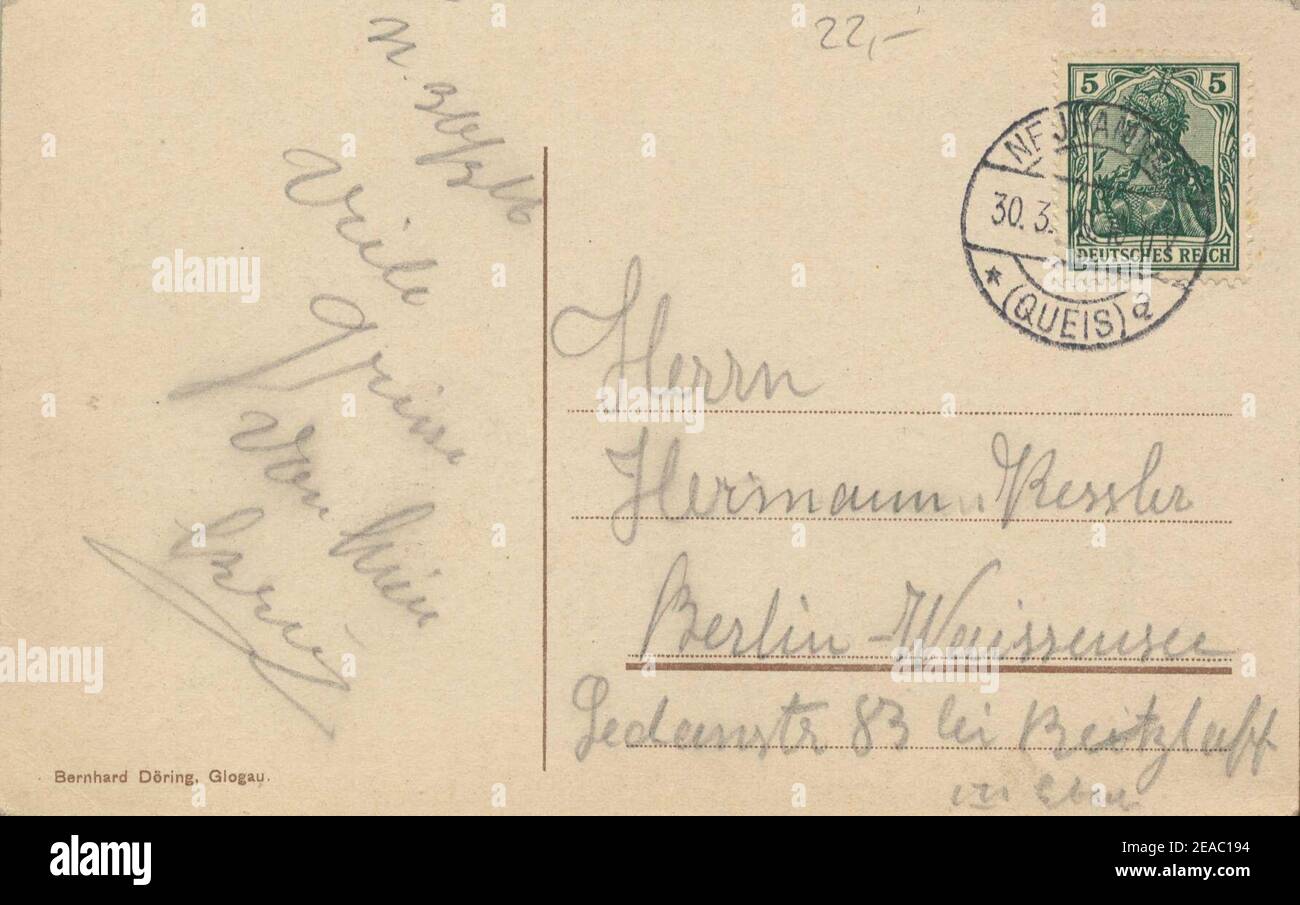 22,-
N. 30/3 16
Viele
Grüsse
von hier
5 5
DEUTSCHES REICH
NEUHAMMER
30. 3.
* (QUEIS) a
Herrn
Hermann Kessler
Berlin-Weissensee
Sedanstr 83 bei Beitzlaff
Bernhard Döring, Glogau.
alamy
Image ID: 2EAC194
www.alamy.com